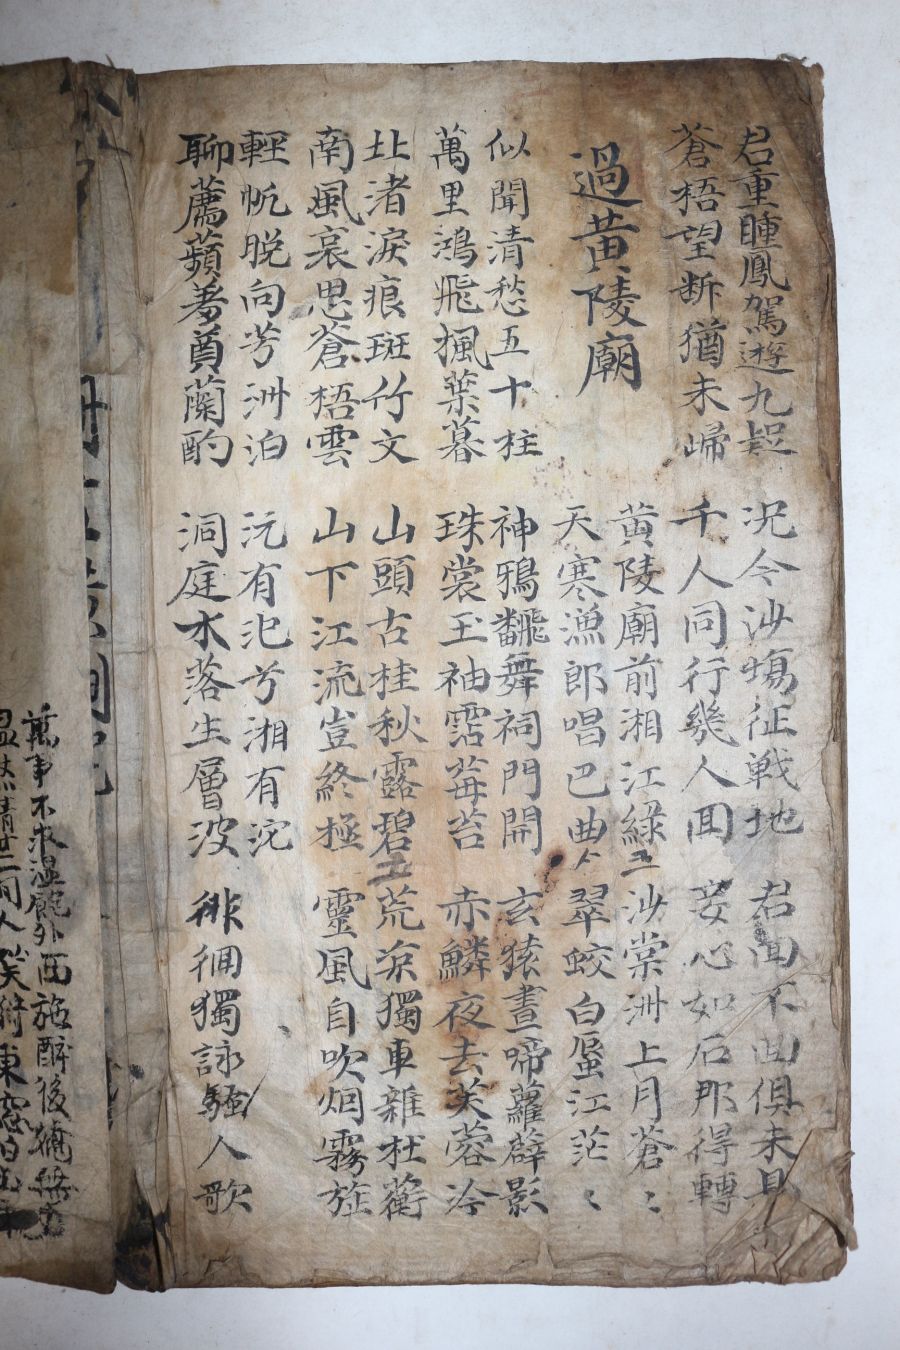 君重瞳鳳駕遊九疑 況今沙塲征戰地 君面不回俱未見
蒼梧望断猶未歸 千人同行幾人回 妾心如石那得轉
過黃陵廟
黃陵廟前湘江綠 沙棠洲上月蒼〻
天寒漁郎唱巴曲 翠蛟白蜃江茫〻
似聞清愁五十柱 神鴉翻舞祠門開 玄猿晝啼蘿薜影
萬里鴻飛楓葉暮 珠裳玉袖霑莓苔 赤鱗夜去芙蓉冷
北渚淚痕斑竹文 山頭古桂秋露碧 荒凉獨車雜杜蘅
南風哀思蒼梧雲 山下江流豈終極 靈風自吹烟霧旌
輕帆脱向芳洲泊 沅有汜兮湘有沱
聊薦蘋蓴奠蘭酌 洞庭水落生層波 徘徊獨詠騷人歌
萬事不求温飽外 西施醉後猶無